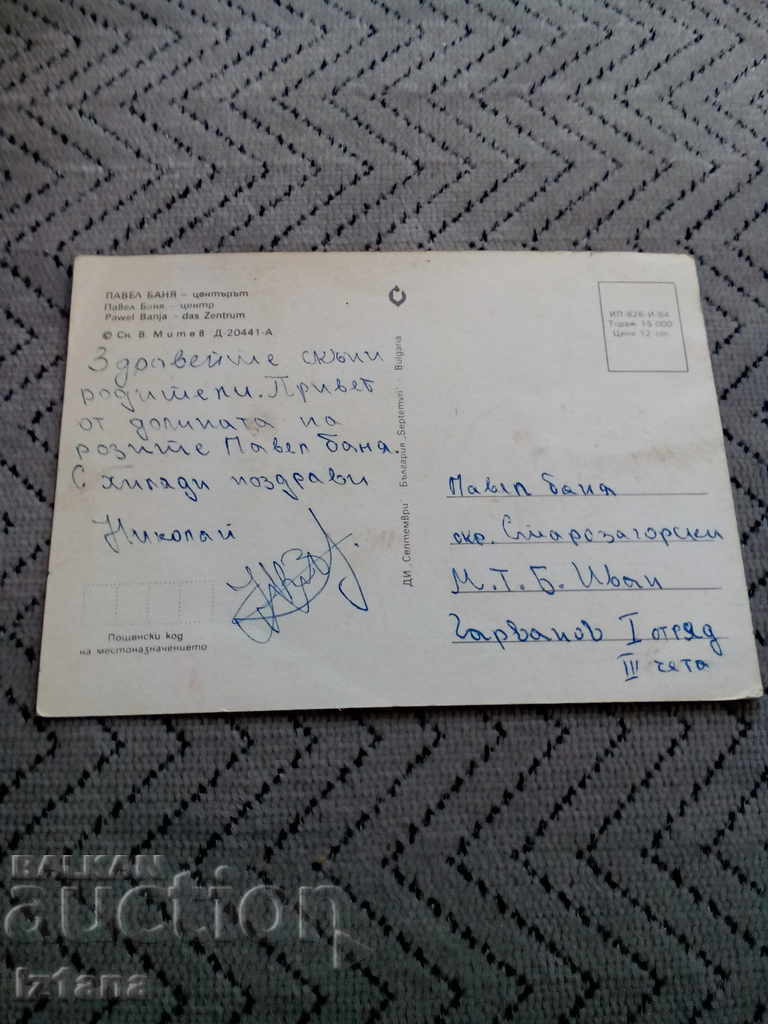 ПАВЕЛ БАНЯ – центърът
Павел Баня – центр
Pawel Banja – das Zentrum
© Сн. В. Митев Д-20441-А
Здравейте скъпи
родители. Привет
от долината на
розите Павел баня.
С хиляди поздрави
Николай
Пощенски код
на местоназначението
ДИ „Септември" България „Septemvri" Bulgaria
ИП-626-И-84
Тираж 15 000
Цена 12 ст.
Павел баня
окр. Старозагорски
М.Т.Б. Иван
Гарванов I отряд
III чета
BALKAN
auction
Iz1ana